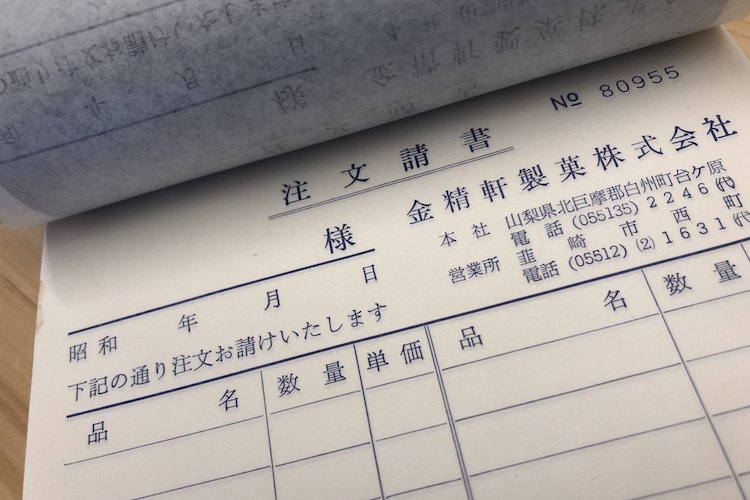 № 80955
注文請書
様
金精軒製菓株式会社
本社 山梨県北巨摩郡白州町台ケ原
電話 (055135) 2246 (代
営業所 韮崎市西町
電話 (05512) (2) 1631 (代
昭和 年 月 日
下記の通り注文お請けいたします
品名 数量 単価 品名 数量